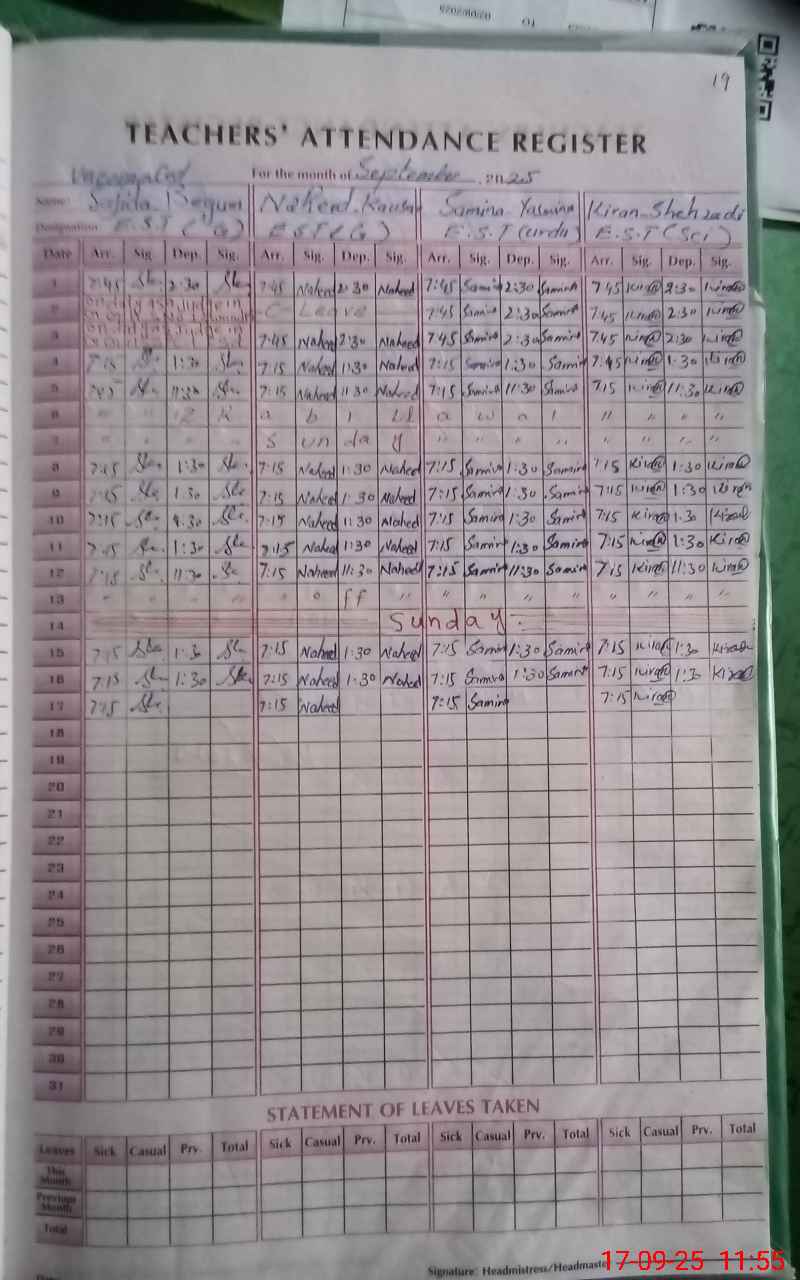 19
TEACHERS' ATTENDANCE REGISTER
For the month of September 2025
Name: Begum Naheed Kausar Samina Yasmina Kiran Shehzadi
Designation E.S.T (G) E.S.T (G) E.S.T (Urdu) E.S.T (Sci)
Date Arr. Sig. Dep. Sig. Arr. Sig. Dep. Sig. Arr. Sig. Dep. Sig. Arr. Sig. Dep. Sig.
1 7:45 2:30 7:45 Naheed 2:30 Naheed 7:45 Samina 2:30 Samina 7:45 Kiran 2:30 Kiran
2 on duty as a judge in C Leave 7:45 Samina 2:30 Samina 7:45 Kiran 2:30 Kiran
3 on duty as a judge in 7:45 Naheed 2:30 Naheed 7:45 Samina 2:30 Samina 7:45 Kiran 2:30 Kiran
4 7:15 1:30 7:15 Naheed 1:30 Naheed 7:15 Samina 1:30 Samina 7:45 Kiran 1:30 Kiran
5 11:30 7:15 Naheed 11:30 Naheed 7:15 Samina 11:30 Samina 7:15 Kiran 11:30 Kiran
6 " " 12 R a b i Ul a w a l " " " "
7 " " " " S un da y " " " " " " " "
8 7:15 1:30 7:15 Naheed 1:30 Naheed 7:15 Samina 1:30 Samina 7:15 Kiran 1:30 Kiran
9 7:15 1:30 7:15 Naheed 1:30 Naheed 7:15 Samina 1:30 Samina 7:15 Kiran 1:30 Kiran
10 7:15 7:15 Naheed 1:30 Naheed 7:15 Samina 1:30 Samina 7:15 Kiran 1:30 Kiran
11 7:15 1:30 7:15 Naheed 1:30 Naheed 7:15 Samina 1:30 Samina 7:15 Kiran 1:30 Kiran
12 7:15 11:30 7:15 Naheed 11:30 Naheed 7:15 Samina 11:30 Samina 7:15 Kiran 11:30 Kiran
13 " " " " " o ff " " " " " " " " "
14 Sunday
15 7:15 1:30 7:15 Naheed 1:30 Naheed 7:15 Samina 1:30 Samina 7:15 Kiran 1:30 Kiran
16 7:15 1:30 7:15 Naheed 1:30 Naheed 7:15 Samina 1:30 Samina 7:15 Kiran 1:30 Kiran
17 7:15 7:15 Naheed 7:15 Samina 7:15 Kiran
18
19
20
21
22
23
24
25
26
27
28
29
30
31
STATEMENT OF LEAVES TAKEN
Leaves Sick Casual Prv. Total Sick Casual Prv. Total Sick Casual Prv. Total Sick Casual Prv. Total
This Month
Previous Month
Total
Signature: Headmistress/Headmaster
17-09-25 11:55